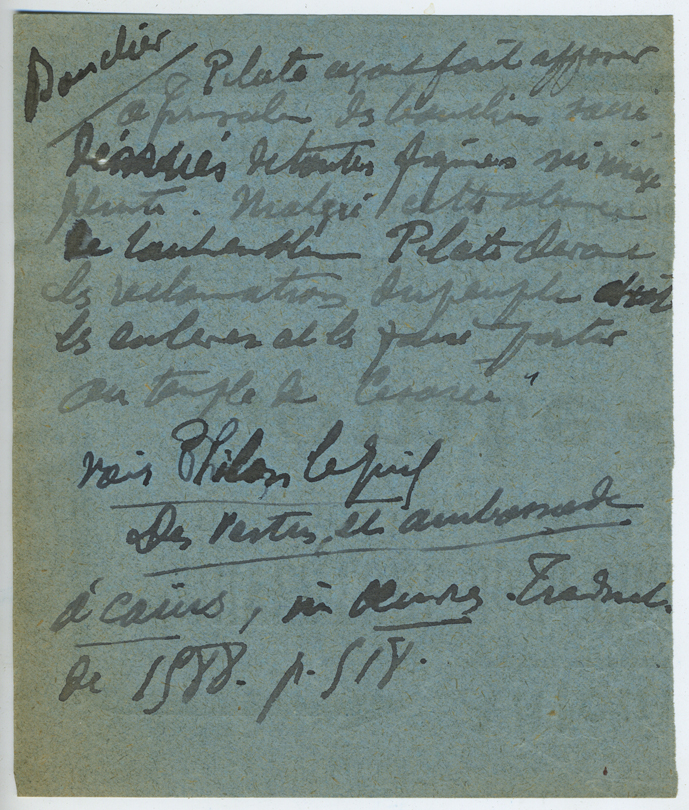 Bouclier
Pilate ayant fait apposer
à Jérusalem des boucliers sacré
dénués de toutes figures ni image
peinte. Malgré cette absence
de Pilate devant
les reclamations du peuple dût
les enlever et les faire porter
au temple de Cesarée"
voir Philon le Juif
Des vertus, et ambassade
à caïus, in œuvres. Traduct.
de 1588. p. 518.